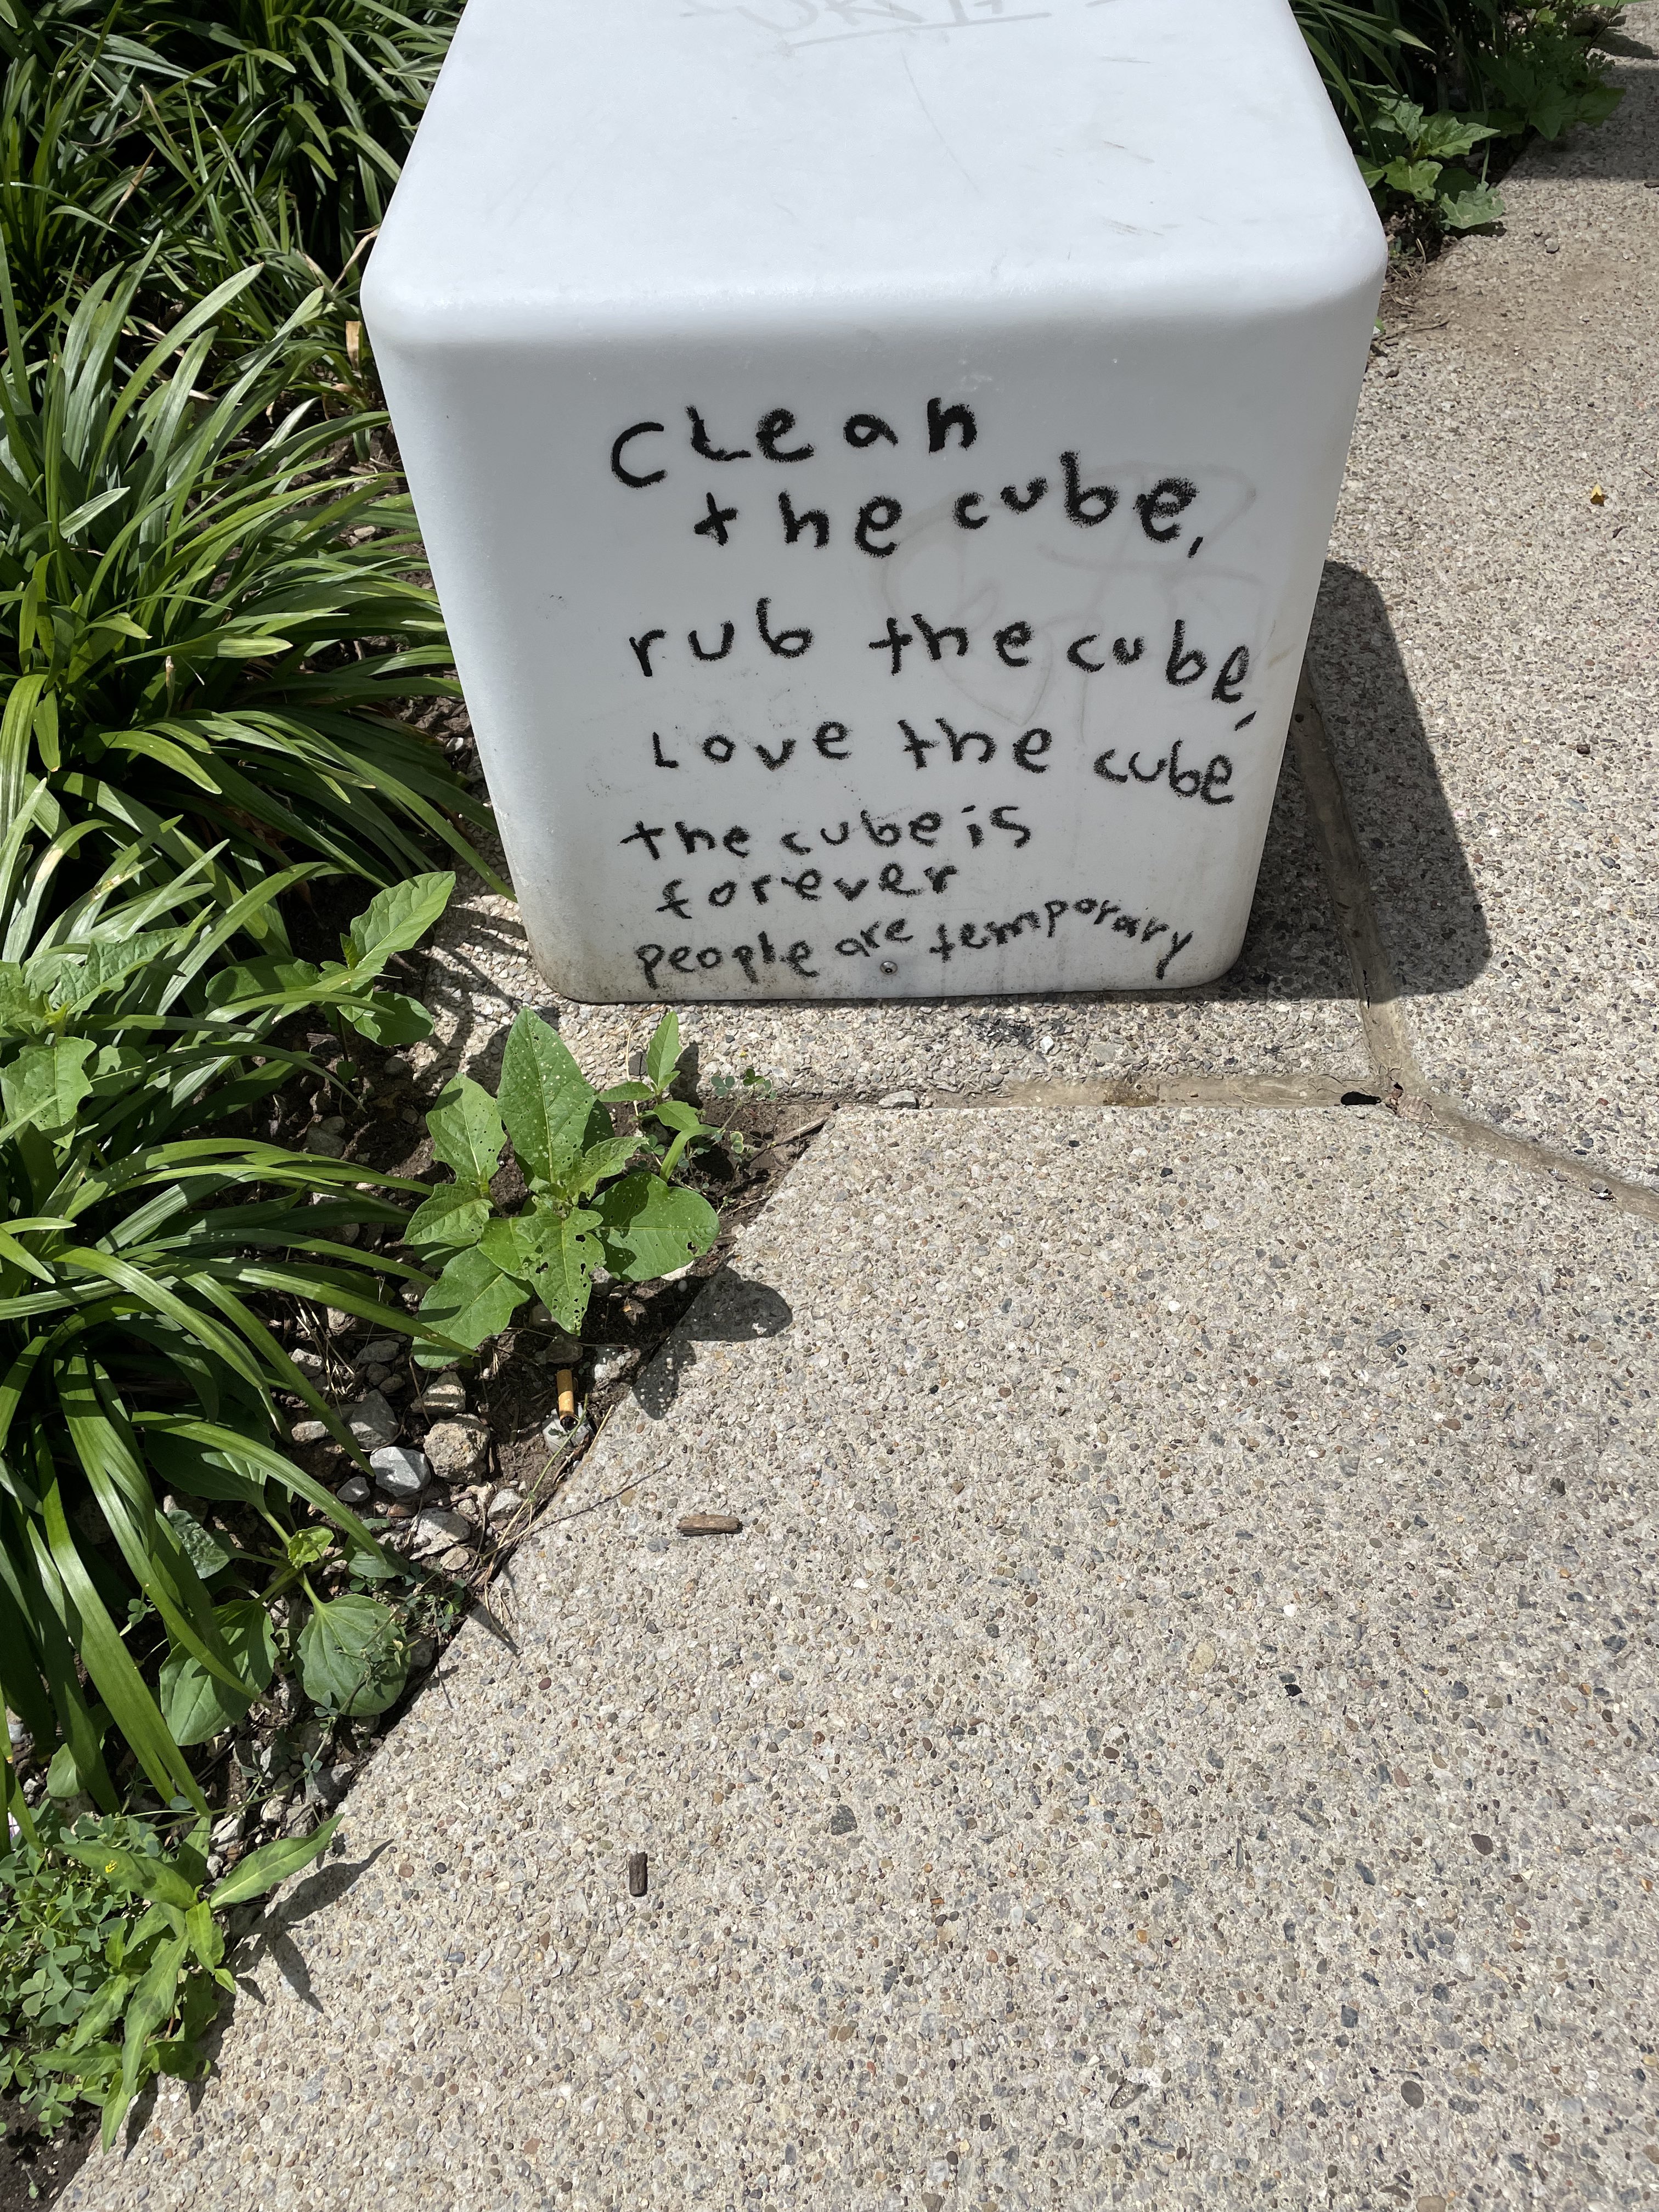 CLean
the cube,
rub the cube,
Love the cube
the cube is
forever
people are temporary